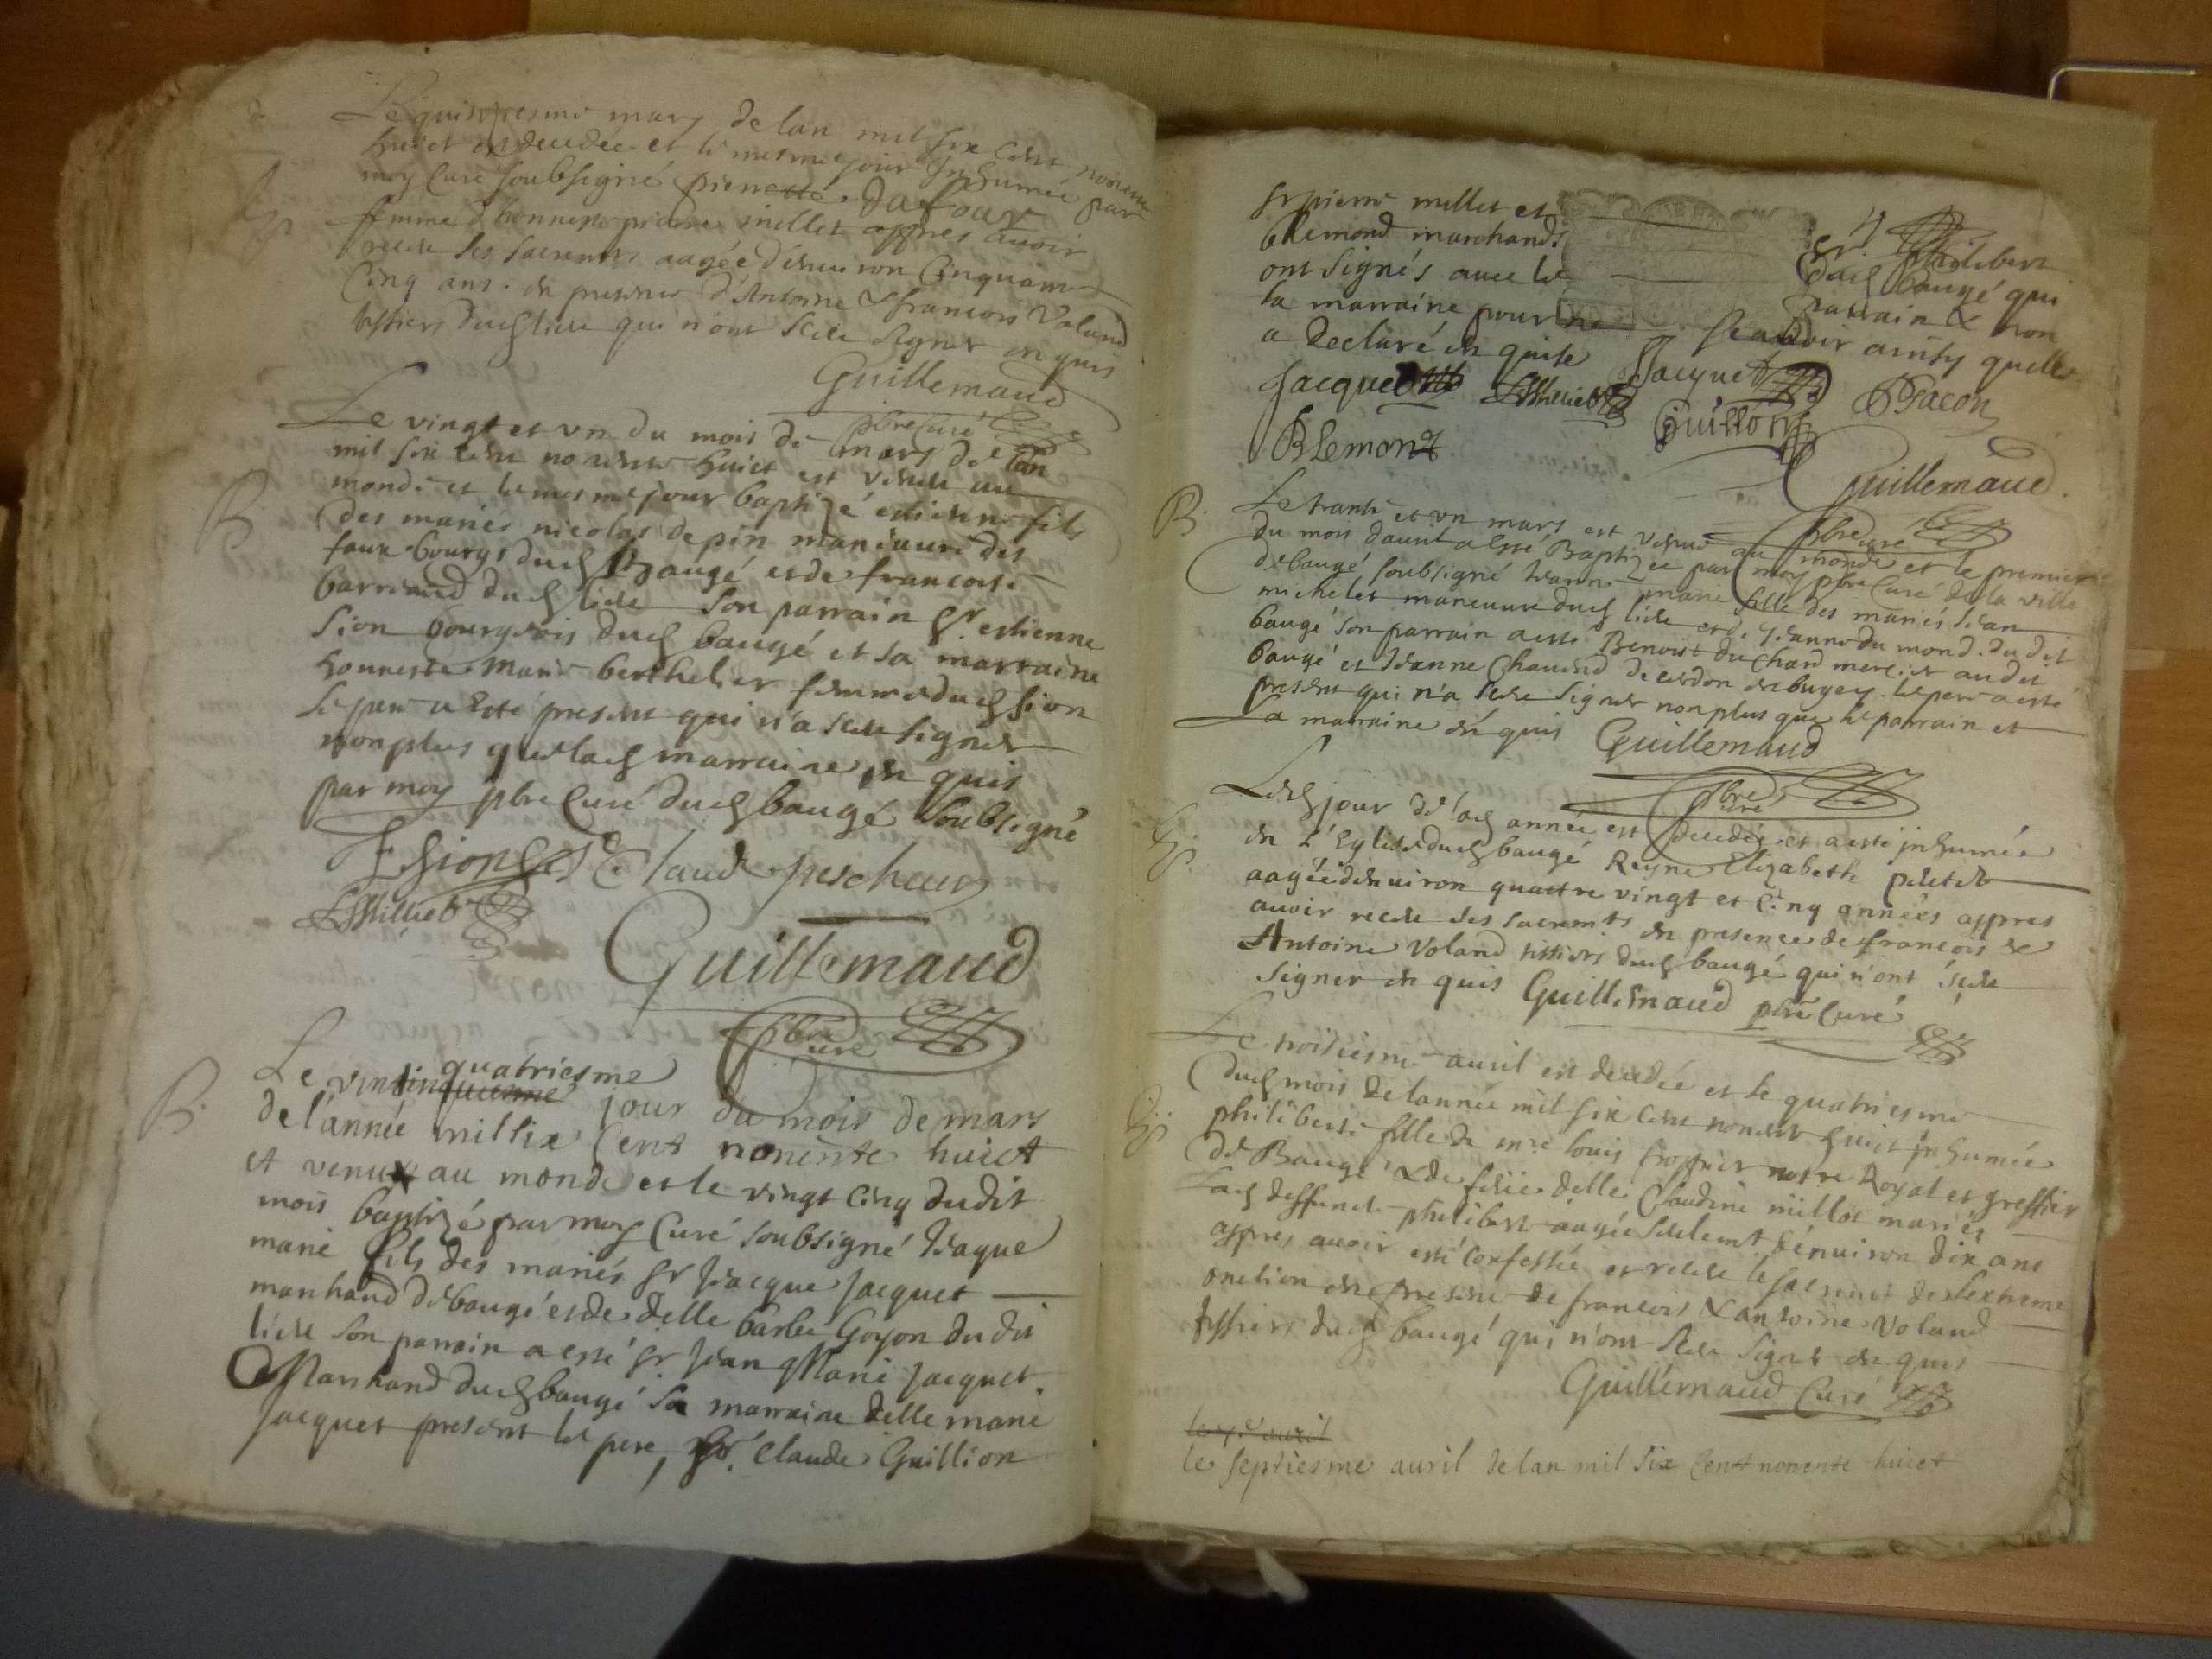 Le quinziesme mars de lan mil six cent nonente
huict est decedée et le mesme jour Inhumée par
moy Curé soubsigné pierrette Dufour
femme d'honneste pierre millet appres avoir
receu les sacremts aagée d'environ Cinquante
Cinq ans. en presence d'Antoine & francois Voland
tissiers dud lieu qui n'ont sceu signer enquis
Guillemaud
pbre Curé
B.
Le vingt et vn du mois de mars de lan
mil six cent nonente huict est venu au
monde et le mesme jour baptizé estienne fils
des mariés nicolas depin maneuure des
faux-bourgs dud Baugé et de francoise
barriaud dud lieu son parrain sr. estienne
Sion bourgeois dud baugé et sa marraine
honneste Marie berthelier femme dud sion
le pere a esté present qui n'a sceu signer
non plus que lad marraine en quis
par moy pbre Curé dud baugé soubsigné
Claude pescheur
Guillemaud
pbre
Curé
B.
quatriesme
Le jour du mois de mars
de l'année mil six Cent nonente huict
et venu au monde et le vingt Cinq dudit
mois baptizé par moy Curé soubsigné Jaque
marie fils des mariés sr Jacque Jacquet
marchand de baugé et de delle barbe Goyon du dit
lieu son parrain a esté sr Jean Marie Jacquet
Marchand dud baugé sa marraine delle marie
Jacquet present le pere, sr. Claude Guillion
sr pierre millet et sr philibert
blemond marchands dud baugé qui
ont signés auec le parrain & non
la marraine pour ne scauoir ainsy quelle
a declaré en quise
Jacquet Jacquet
Guillon
Blemont
Guillemaud
pbre
curé
B.
Le trante et vn mars est venue au monde et le premier
du mois dauril a esté Baptizée par moy pbre Curé de la ville
de baugé soubsigné Jeanne marie fille des mariés Jean
michelet maneuure dud lieu et de Jeanne du mond. du dit
baugé son parrain a esté Benoist du Chard mercier audit
baugé et Jeanne Chauend de cerdon en bugey. le pere a esté
present qui n'a sceu signer non plus que le parrain et
La marraine en quis Guillemaud
pbre
curé
Led jour de lad année est decedée et a esté jnhumée
en l'Eglise dud baugé Reyne Elizabeth
aagée d'enuiron quattre vingt et Cinq années appres
auoir receu ses sacremts en presence de francois &
Antoine Voland tissiers dud baugé qui n'ont sceu
signer en quis Guillemaud pbre Curé
Le troisiesme auril est decedée et le quatriesme
dud mois de lannée mil six cent nonente huict jnhumée
philiberte fille de mre louis notre Royal et greffier
de Baugé & de feüe delle Claudine millot mariés
lad deffuncte philiberte aagée seulemt d'enuiron dix ans
appres auoir esté confessée et receu le sacremt de lextreme
onction en presence de francois & antoine Voland
tissiers dud baugé qui n'ont sceu signer en quis
Guillemaud Curé
le septiesme auril de lan mil six Cent nonente huict